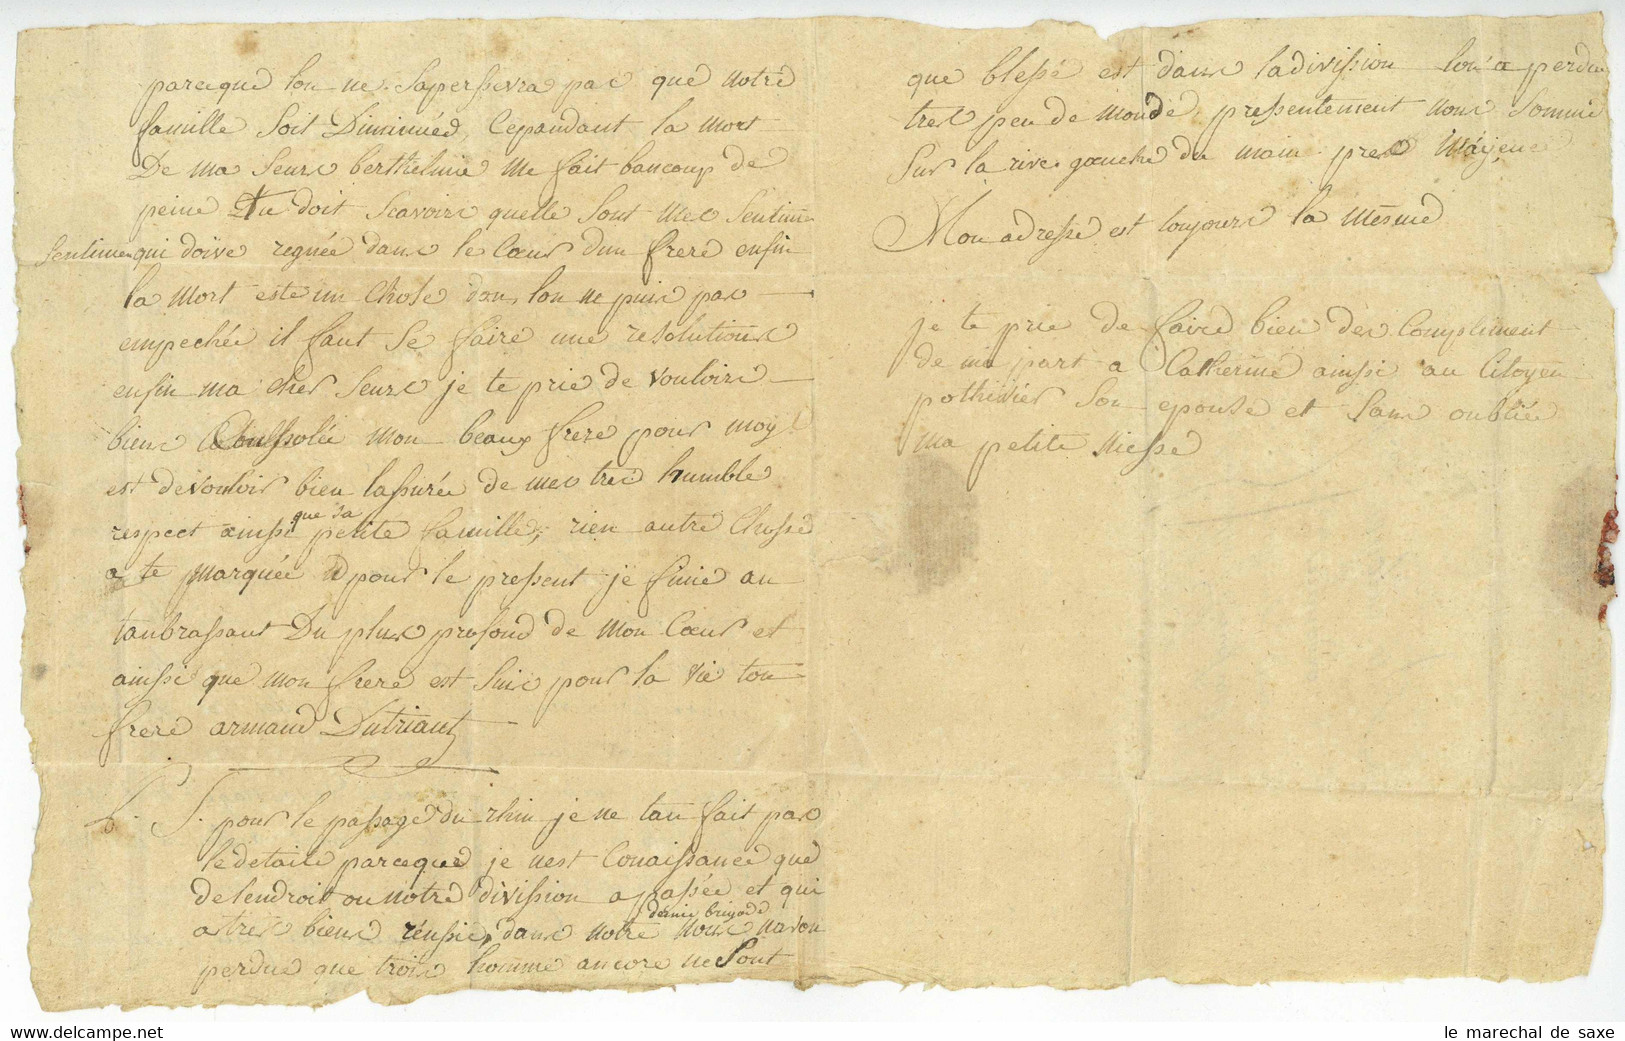 parceque lon ne sapersevra pas que notre
famille soit Diminuéé, Cependant la mort
De ma seure berthelmie me fait baucoup de
peine tu doit scavoire quelle sont mes sentim
sentimen qui doive regnée dans le Cœur dun frere enfin
la mort este un Chose don lon ne puis pas
empechée il faut se faire une resolutions
enfin ma cher seure je te prie de vouloire
biens Conssolée mon beaux frere pour moy
est de vouloir bien lassurée de mes tres humble
respect ainsi que sa petite famille, rien autre Chosse
a te marquée pour le present je finie an
tanbrassant Du plus profond de mon Cœur et
ainsi que mon frere est suis pour la vie ton
frere armand Dutriant
P. S. pour le passage du rhin je ne tan fait pas
le detaile parceque je nest Conaissance que
de lendroit ou notre division a passée et qui
a tres biens réussie, dans notre demie brigade nous navon
perdue que trois homme ancore ne sont
que blessé est dans ladivission lon a perdu
tres peu de monde pressentement nous somme
sur la rive gauche du main pres Mayence
Mon adresse est toujours la mesme
je te prie de faire bien des Compliment
de ma part a Catherine ainsi au Citoyen
pothivier son epouse et sans oubliée
ma petite niesse
le marechal de saxe